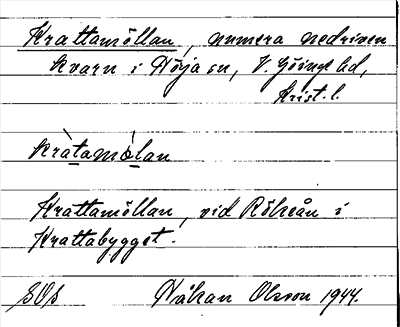 Krattamöllan, numera nedriven
kvarn i Röja sn, V. Göinge hd,
Krist. l.
kràtamölan
Krattamöllan, vid Rökeån i
Krattabygget.
SOS Håkan Olsson 1944.